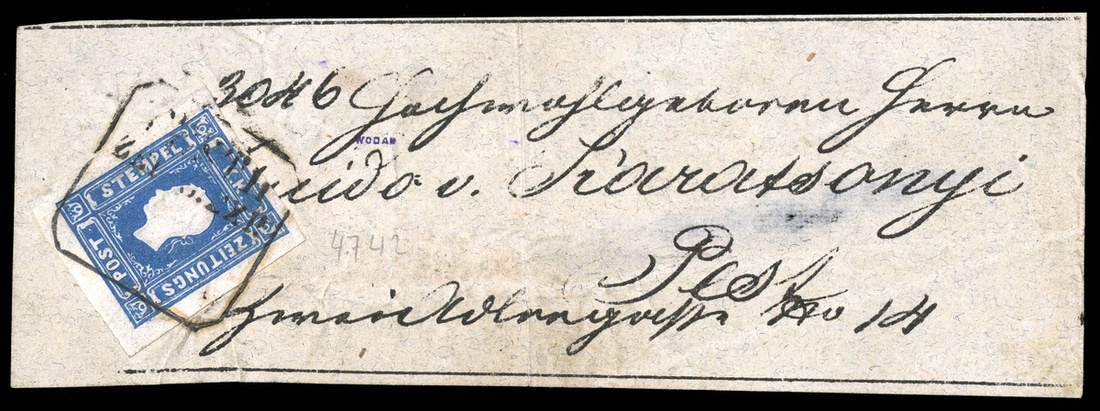 3046 Hochwohlgeboren Herrn
WODAK
Guido v. Karatsonyi
4742
Pest
Zwei Adlergasse No 14
K.K. ZEITUNGS POST STEMPEL